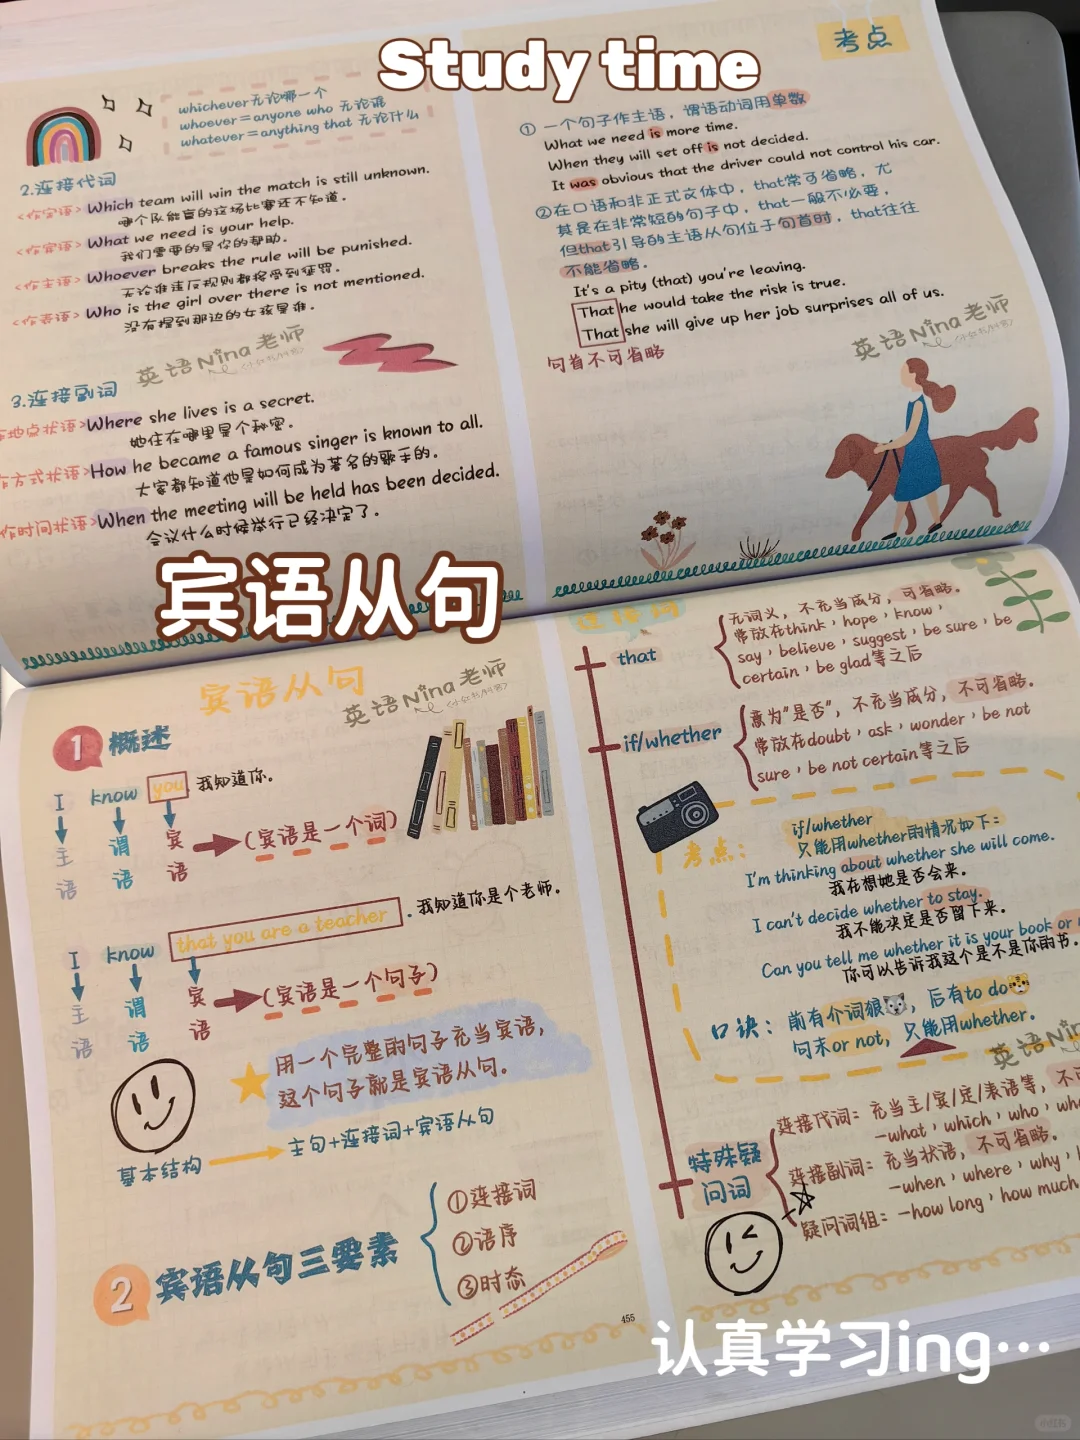 Study time
考点
whichever无论哪一个
whoever=anyone who 无论谁
whatever=anything that 无论什么
2.连接代词
<作定语>Which team will win the match is still unknown.
哪个队能赢的这场比赛还不知道。
<作宾语>What we need is your help.
我们需要的是你的帮助。
<作主语>Whoever breaks the rule will be punished.
无论谁违反规则都将受到惩罚。
<作表语>Who is the girl over there is not mentioned.
没有提到那边的女孩是谁。
英语Nina老师
3.连接副词
地点状语>Where she lives is a secret.
她住在哪里是个秘密。
作方式状语>How he became a famous singer is known to all.
大家都知道他是如何成为著名的歌手的。
作时间状语>When the meeting will be held has been decided.
会议什么时候举行已经决定了。
① 一个句子作主语，谓语动词用单数
What we need is more time.
When they will set off is not decided.
It was obvious that the driver could not control his car.
②在口语和非正式文体中，that常可省略，尤
其是在非常短的句子中，that一般不必要，
但that引导的主语从句位于句首时，that往往
不能省略。
It's a pity (that) you're leaving.
That he would take the risk is true.
That she will give up her job surprises all of us.
句首不可省略
英语Nina老师
宾语从句
宾语从句
英语Nina老师
1 概述
I know you. 我知道你。
主语 谓语 宾语 (宾语是一个词)
I know that you are a teacher. 我知道你是个老师。
主语 谓语 宾语 (宾语是一个句子)
用一个完整的句子充当宾语，
这个句子就是宾语从句。
基本结构 主句+连接词+宾语从句
2 宾语从句三要素
①连接词
②语序
③时态
455
连接词
that
无词义，不充当成分，可省略。
常放在think，hope，know，
say，believe，suggest，be sure，be
certain，be glad等之后
if/whether
意为"是否"，不充当成分，不可省略。
常放在doubt，ask，wonder，be not
sure，be not certain等之后
考点：
if/whether
只能用whether的情况如下：
I'm thinking about whether she will come.
我在想她是否会来。
I can't decide whether to stay.
我不能决定是否留下来。
Can you tell me whether it is your book or
你可以告诉我这个是不是你的书。
口诀：前有介词狼🐺，后有to do🐯
句末or not，只能用whether.
英语Nin
特殊疑
问词
连接代词：充当主/宾/定/表语等，不可
-what，which，who，
连接副词：充当状语，不可省略。
-when，where，why，
疑问词组：-how long，how much
认真学习ing…
小红书